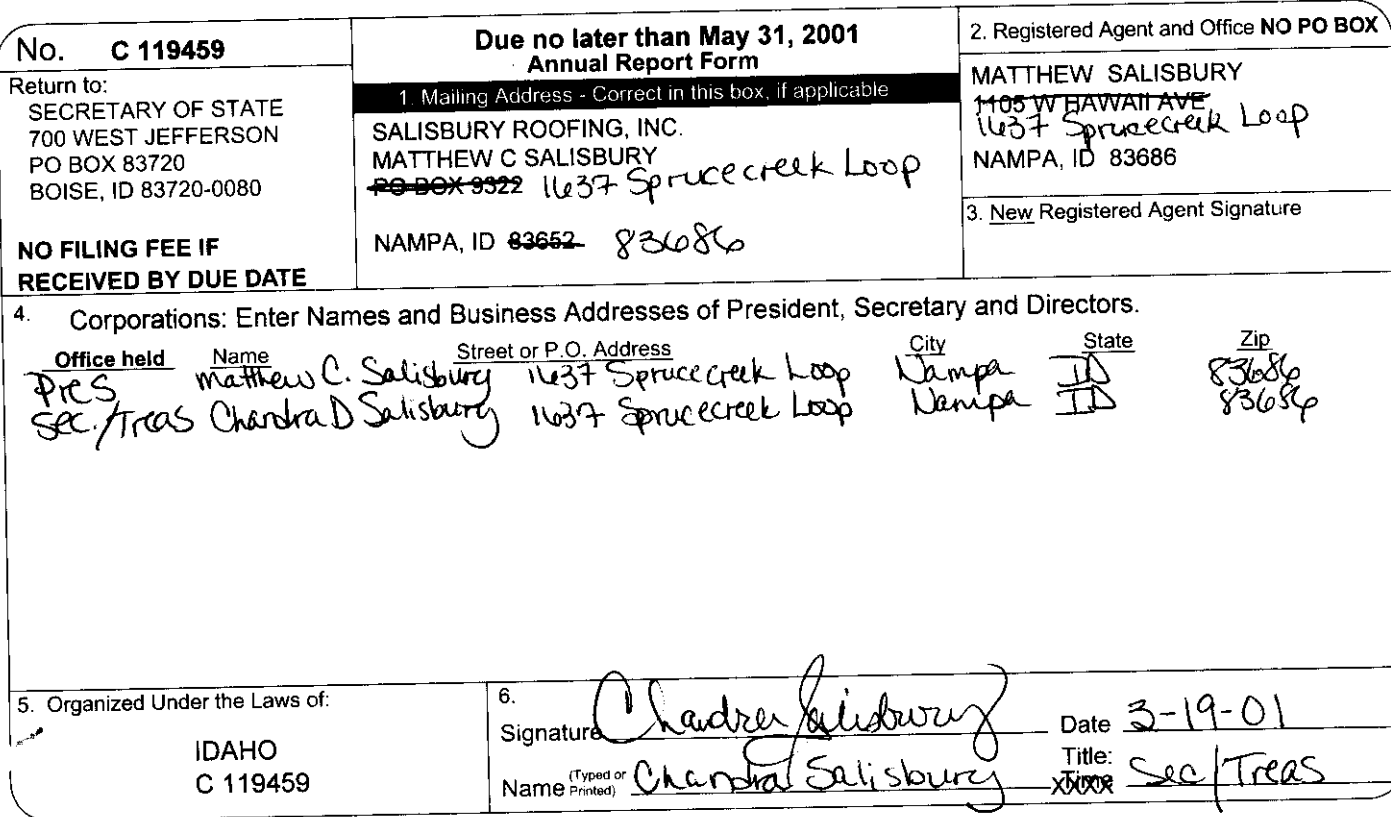 No. C 119459
Return to:
SECRETARY OF STATE
700 WEST JEFFERSON
PO BOX 83720
BOISE, ID 83720-0080
NO FILING FEE IF
RECEIVED BY DUE DATE
Due no later than May 31, 2001
Annual Report Form
1. Mailing Address - Correct in this box, if applicable
SALISBURY ROOFING, INC.
MATTHEW C SALISBURY
PO BOX 9322 1637 Sprucecreek Loop
NAMPA, ID 83652 83686
2. Registered Agent and Office NO PO BOX
MATTHEW SALISBURY
1105 W HAWAII AVE
1637 Sprucecreek Loop
NAMPA, ID 83686
3. New Registered Agent Signature
4. Corporations: Enter Names and Business Addresses of President, Secretary and Directors.
Office held Name Street or P.O. Address City State Zip
Pres Matthew C. Salisbury 1637 Sprucecreek Loop Nampa ID 83686
Sec./Treas Chandra D Salisbury 1637 Sprucecreek Loop Nampa ID 83686
5. Organized Under the Laws of:
IDAHO
C 119459
6.
Signature Chandra Salisbury Date 3-19-01
Name (Typed or Printed) Chandra Salisbury Title: Sec/Treas